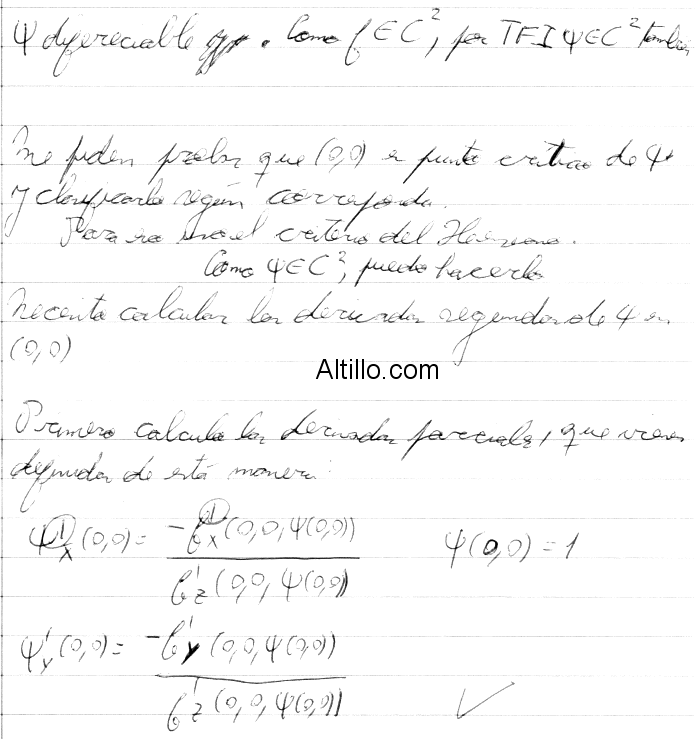 ψ difereciable . Como f ∈ C², por TFI ψ ∈ C² también
Me piden probar que (0,0) es punto crítico de ψ
y clasificarlo según corresponda.
Para eso uso el criterio del Hessiano.
Como ψ ∈ C², puedo hacerlo
Necesito calcular las derivadas segundas de ψ en
(0,0)
Altillo.com
Primero calculo las derivadas parciales, que vienen
definidas de está manera:
ψ'x (0,0) = -f'x (0,0,ψ(0,0)) / f'z (0,0,ψ(0,0))    ψ(0,0) = 1
ψ'y (0,0) = -f'y (0,0,ψ(0,0)) / f'z (0,0,ψ(0,0)) ✓